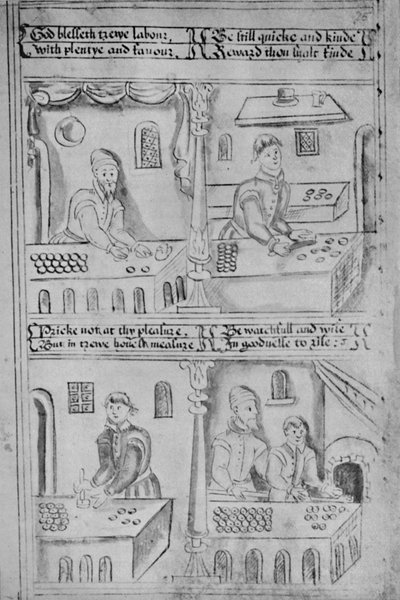 God blesseth trewe labour,
With plentye and fauour.
Be still quicke and kinde
Reward thou shalt finde
Pricke not at thy pleasure.
But in trewe honest measure
Be watchfull and wise
In goodnesse to rise: